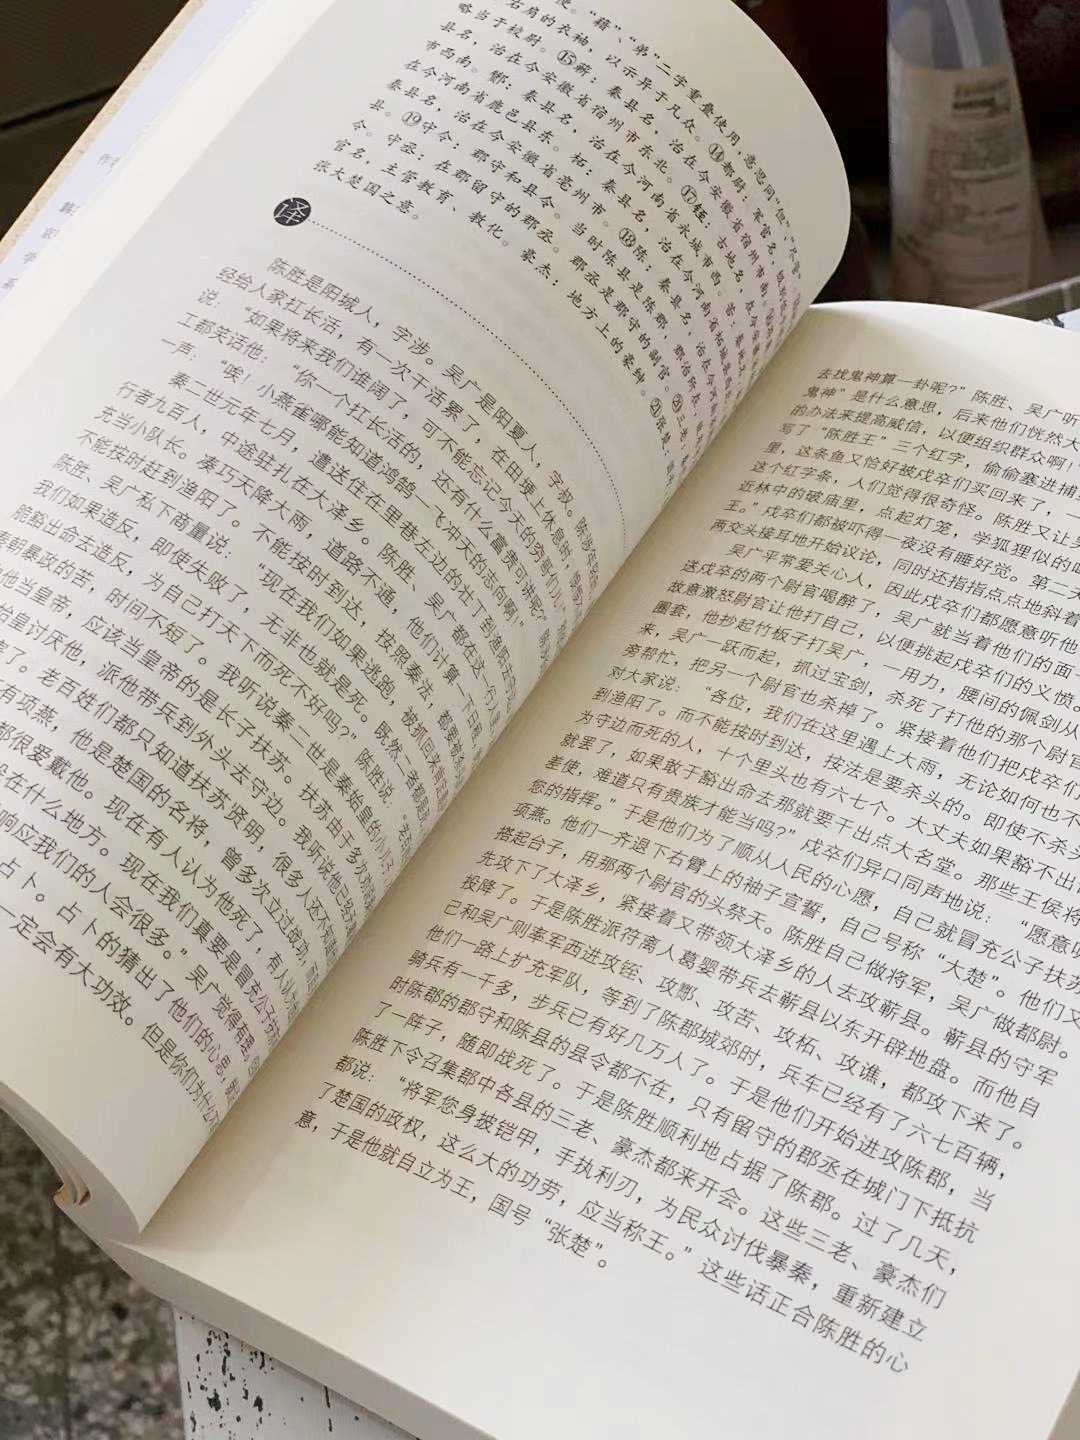 使。“藉”、“弟”二字重叠使用，意思同“但”、
右肩的衣袖，以示异于凡众。⑭都尉：军官名，
略当于校尉。⑮蕲：秦县名，治在今安徽省宿州市
县名，治在今安徽省宿州市东北。⑰铚：古地名，
市西南。酂：秦县名，治在今河南省永城市西。苦：
在今河南省鹿邑县东。柘：秦县名，治在今河南省柘城县
秦县名，治在今安徽省亳州市。⑱陈：秦县名，
县。⑲守令：郡守和县令。当时陈县是陈郡，郡治所在，
令。守丞：在郡留守的郡丞。郡丞是郡守的副官。
官名，主管教育、教化。豪杰：地方上的豪绅。
张大楚国之意。
译
陈胜是阳城人，字涉。吴广是阳夏人，字叔。陈涉年轻
经给人家扛长活，有一次干活累了，在田埂上休息时，
说：“如果将来我们谁阔了，可不能忘记今天的穷哥们儿
工都笑话他：“你一个扛长活的，还有什么富贵可讲呢？”
一声：“唉！小燕雀哪能知道鸿鹄一飞冲天的志向啊！”
秦二世元年七月，遣送住在里巷左边的壮丁到渔阳去
行者九百人，中途驻扎在大泽乡。陈胜、吴广都在这一行人里，
充当小队长。凑巧天降大雨，道路不通，他们计算一下日程，
不能按时赶到渔阳了。不能按时到达，按照秦法，都要
陈胜、吴广私下商量说：“现在我们如果逃跑，被抓回来
我们如果造反，即使失败了，无非也就是死。既然二者都是
能豁出命去造反，为自己打天下而死不好吗？”陈胜说：
秦朝暴政的苦，时间不短了。我听说秦二世是秦始皇的小儿子，
他当皇帝，应该当皇帝的是长子扶苏。扶苏由于多次劝谏
始皇讨厌他，派他带兵到外头去守边。我听说他已经
了。老百姓们都只知道扶苏贤明，很多人还不知道
有项燕，他是楚国的名将，曾多次立过战功，
都很爱戴他。现在有人认为他死了，有人认为他
在什么地方。现在我们真要是冒充公子扶苏
响应我们的人会很多。”吴广觉得有理，
占卜。占卜的猜出了他们的心思，
一定会有大功效。但是你们为什么不
去找鬼神算一卦呢？”陈胜、吴广听
鬼神”是什么意思，后来他们恍然大
的办法来提高威信，以便组织群众啊！
写了“陈胜王”三个红字，偷偷塞进捕
里，这条鱼又恰好被戍卒们买回来了，
这个红字条，人们觉得很奇怪。陈胜又让吴
近林中的破庙里，点起灯笼，学狐狸似的
王。”戍卒们都被吓得一夜没有睡好觉。第二天
两交头接耳地开始议论，同时还指指点点地斜着
吴广平常爱关心人，因此戍卒们都愿意听他
送戍卒的两个尉官喝醉了，吴广就当着他们的面
故意激怒尉官让他打自己，以便挑起戍卒们的义愤。
圈套，他抄起竹板子打吴广，一用力，腰间的佩剑从
来，吴广一跃而起，抓过宝剑，杀死了打他的那个尉官
旁帮忙，把另一个尉官也杀掉了。紧接着他们把戍卒们
对大家说：“各位，我们在这里遇上大雨，无论如何也不
到渔阳了。而不能按时到达，按法是要杀头的。即使不杀头
为守边而死的人，十个里头也有六七个。大丈夫如果豁不出
就罢了，如果敢于豁出命去那就要干出点大名堂。那些王侯将
差使，难道只有贵族才能当吗？”戍卒们异口同声地说：“愿意听
您的指挥。”于是他们为了顺从人民的心愿，自己就冒充公子扶苏
项燕。他们一齐退下右臂上的袖子宣誓，自己号称“大楚”。他们又
搭起台子，用那两个尉官的头祭天。陈胜自己做将军，吴广做都尉。
先攻下了大泽乡，紧接着又带领大泽乡的人去攻蕲县。蕲县的守军
投降了。于是陈胜派符离人葛婴带兵去蕲县以东开辟地盘。而他自
己和吴广则率军西进攻铚、攻酂、攻苦、攻柘、攻谯，都攻下来了。
他们一路上扩充军队，等到了陈郡城郊时，兵车已经有了六七百辆，
骑兵有一千多，步兵已有好几万人了。于是他们开始进攻陈郡，当
时陈郡的郡守和陈县的县令都不在，只有留守的郡丞在城门下抵抗
了一阵子，随即战死了。于是陈胜顺利地占据了陈郡。过了几天，
陈胜下令召集郡中各县的三老、豪杰都来开会。这些三老、豪杰们
都说：“将军您身披铠甲，手执利刃，为民众讨伐暴秦，重新建立
了楚国的政权，这么大的功劳，应当称王。”这些话正合陈胜的心
意，于是他就自立为王，国号“张楚”。